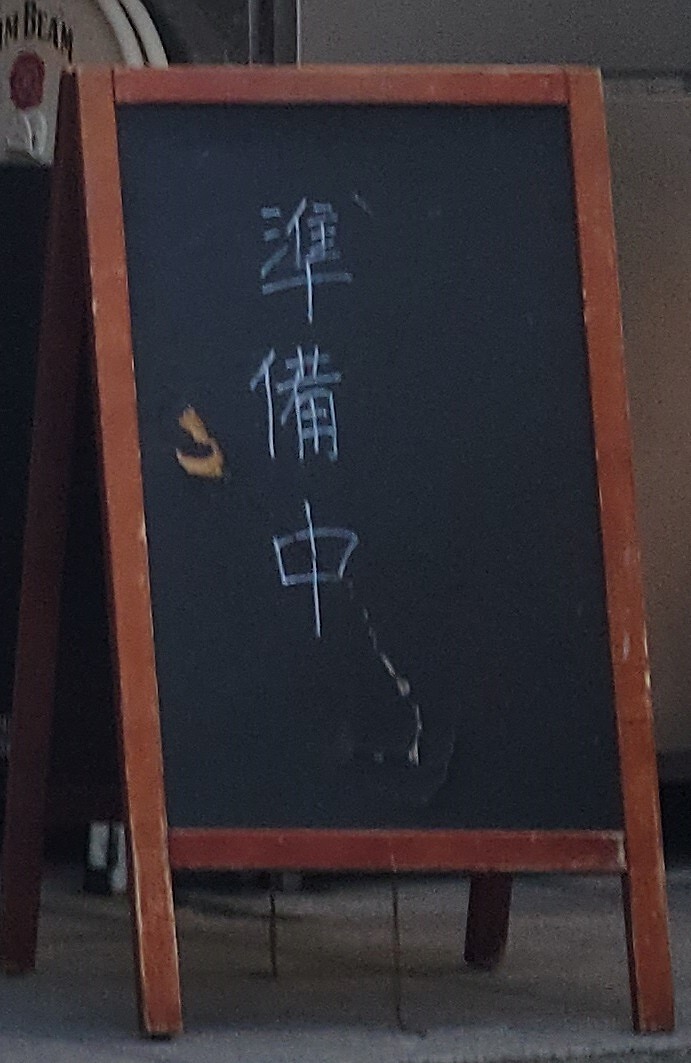 準備中
JIM BEAM